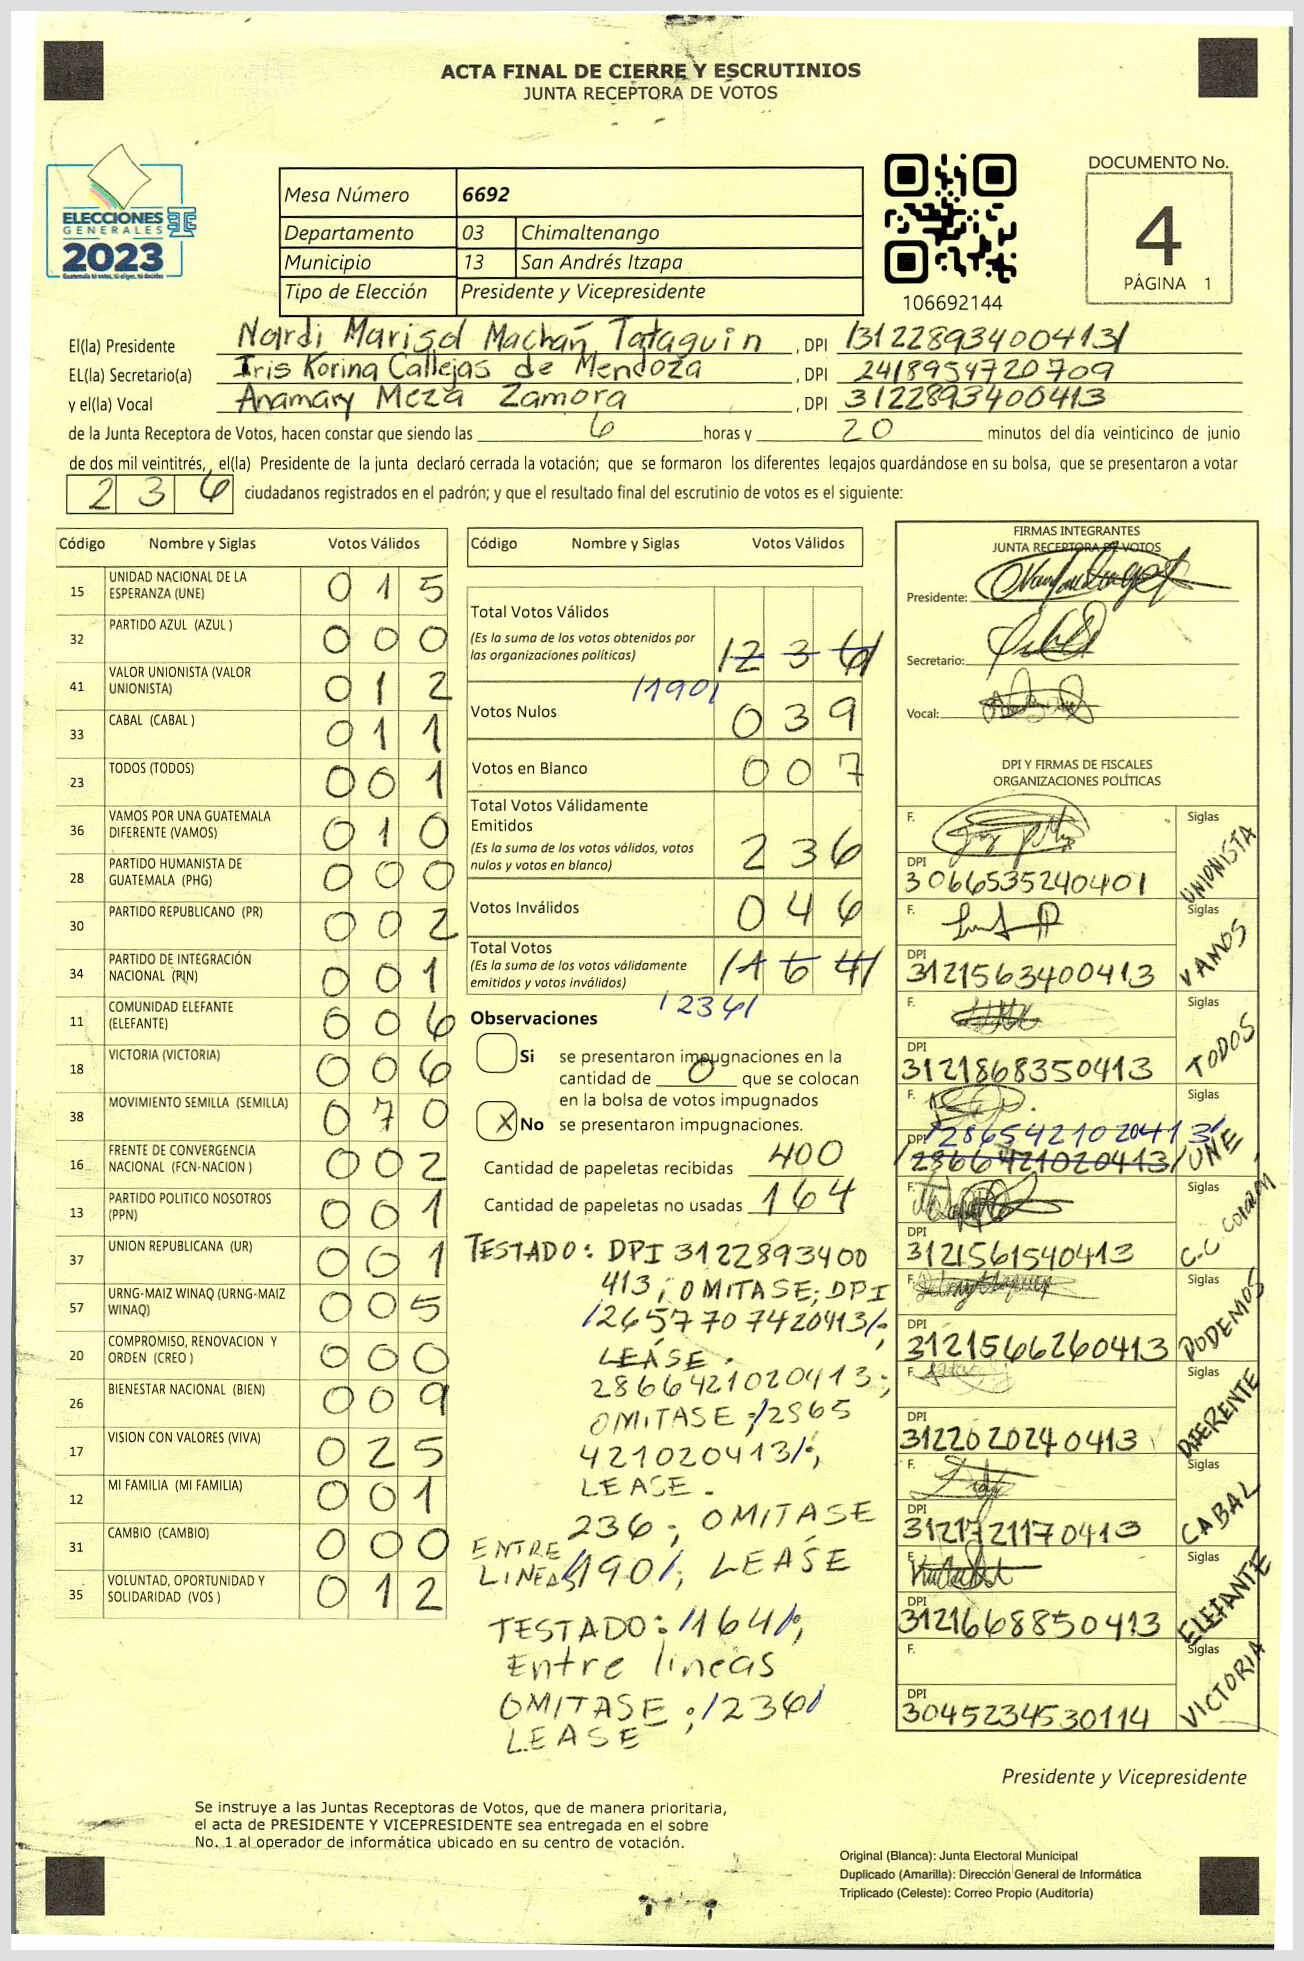 ACTA FINAL DE CIERRE Y ESCRUTINIOS
JUNTA RECEPTORA DE VOTOS
ELECCIONES
GENERALES
2023
Guatemala tú votas, tú eliges, tú decides
Mesa Número 6692
Departamento 03 Chimaltenango
Municipio 13 San Andrés Itzapa
Tipo de Elección Presidente y Vicepresidente
106692144
DOCUMENTO No.
4
PÁGINA 1
El(la) Presidente Nardi Marisol Machán Tataguin , DPI /3122893400413/
EL(la) Secretario(a) Iris Korina Callejas de Mendoza , DPI 2418954720709
y el(la) Vocal Anamary Meza Zamora , DPI 3122893400413
de la Junta Receptora de Votos, hacen constar que siendo las 6 horas y 20 minutos del día veinticinco de junio
de dos mil veintitrés, el(la) Presidente de la junta declaró cerrada la votación; que se formaron los diferentes legajos guardándose en su bolsa, que se presentaron a votar
236 ciudadanos registrados en el padrón; y que el resultado final del escrutinio de votos es el siguiente:
Código Nombre y Siglas Votos Válidos
15 UNIDAD NACIONAL DE LA ESPERANZA (UNE) 015
32 PARTIDO AZUL (AZUL ) 000
41 VALOR UNIONISTA (VALOR UNIONISTA) 012
33 CABAL (CABAL ) 011
23 TODOS (TODOS) 001
36 VAMOS POR UNA GUATEMALA DIFERENTE (VAMOS) 010
28 PARTIDO HUMANISTA DE GUATEMALA (PHG) 000
30 PARTIDO REPUBLICANO (PR) 002
34 PARTIDO DE INTEGRACIÓN NACIONAL (PIN) 001
11 COMUNIDAD ELEFANTE (ELEFANTE) 006
18 VICTORIA (VICTORIA) 006
38 MOVIMIENTO SEMILLA (SEMILLA) 070
16 FRENTE DE CONVERGENCIA NACIONAL (FCN-NACION ) 002
13 PARTIDO POLITICO NOSOTROS (PPN) 001
37 UNION REPUBLICANA (UR) 001
57 URNG-MAIZ WINAQ (URNG-MAIZ WINAQ) 005
20 COMPROMISO, RENOVACION Y ORDEN (CREO ) 000
26 BIENESTAR NACIONAL (BIEN) 009
17 VISION CON VALORES (VIVA) 025
12 MI FAMILIA (MI FAMILIA) 001
31 CAMBIO (CAMBIO) 000
35 VOLUNTAD, OPORTUNIDAD Y SOLIDARIDAD (VOS ) 012
Código Nombre y Siglas Votos Válidos
Total Votos Válidos
(Es la suma de los votos obtenidos por
las organizaciones políticas) /236/
/190/
Votos Nulos 039
Votos en Blanco 007
Total Votos Válidamente
Emitidos
(Es la suma de los votos válidos, votos
nulos y votos en blanco) 236
Votos Inválidos 046
Total Votos
(Es la suma de los votos válidamente
emitidos y votos inválidos) /164/
/236/
Observaciones
Si se presentaron impugnaciones en la
cantidad de 0 que se colocan
en la bolsa de votos impugnados
X No se presentaron impugnaciones.
Cantidad de papeletas recibidas 400
Cantidad de papeletas no usadas 164
TESTADO: DPI 3122893400
413; OMITASE; DPI
/2657707420413/;
LEASE.
2866421020413;
OMITASE;/2865
421020413/;
LEASE.
236; OMITASE
ENTRE
LINEAS /190/; LEASE
TESTADO: /164/;
Entre lineas
OMITASE ;/236/
LEASE
FIRMAS INTEGRANTES
JUNTA RECEPTORA DE VOTOS
Presidente:
Secretario:
Vocal:
DPI Y FIRMAS DE FISCALES
ORGANIZACIONES POLÍTICAS
F. Siglas
DPI 3066535240401 UNIONISTA
F. Siglas
DPI 3121563400413 VAMOS
F. Siglas
DPI 3121868350413 TODOS
F. Siglas
DPI /2865421020413/
/2866421020413/ UNE
F. Siglas
DPI 3121561540413 C.C Corazon
F. Siglas
DPI 3121566260413 PODEMOS
F. Siglas
DPI 3122020240413 DIFERENTE
F. Siglas
DPI 3121721170413 CABAL
F. Siglas
DPI 3121668850413 ELEFANTE
F. Siglas
DPI 3045234530114 VICTORIA
Presidente y Vicepresidente
Se instruye a las Juntas Receptoras de Votos, que de manera prioritaria,
el acta de PRESIDENTE Y VICEPRESIDENTE sea entregada en el sobre
No. 1 al operador de informática ubicado en su centro de votación.
Original (Blanca): Junta Electoral Municipal
Duplicado (Amarilla): Dirección General de Informática
Triplicado (Celeste): Correo Propio (Auditoría)